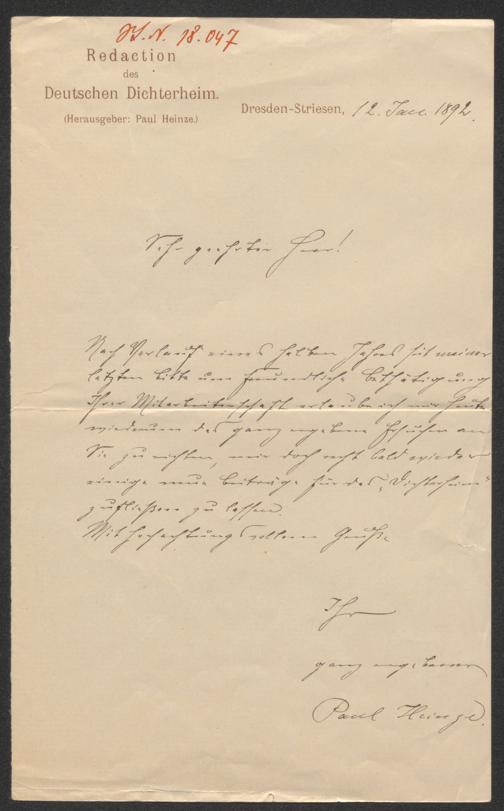 H.I.N. 18.047
Redaction
des
Deutschen Dichterheim.
(Herausgeber: Paul Heinze.)
Dresden-Striesen, 12. Jan. 1892.
Sehr geehrter Herr!
Nach Verlauf eines halben Jahres seit meiner
letzten Bitte um freundliche Bethätigung
Ihrer Mitarbeiterschaft erlaube ich mir heute
wiederum das ganz ergebene Ersuchen an
Sie zu richten, mir doch recht bald wieder
einige neue Beiträge für das „Dichterheim"
zufließen zu lassen.
Mit hochachtungsvollem Gruße
Ihr
ganz ergebener
Paul Heinze.